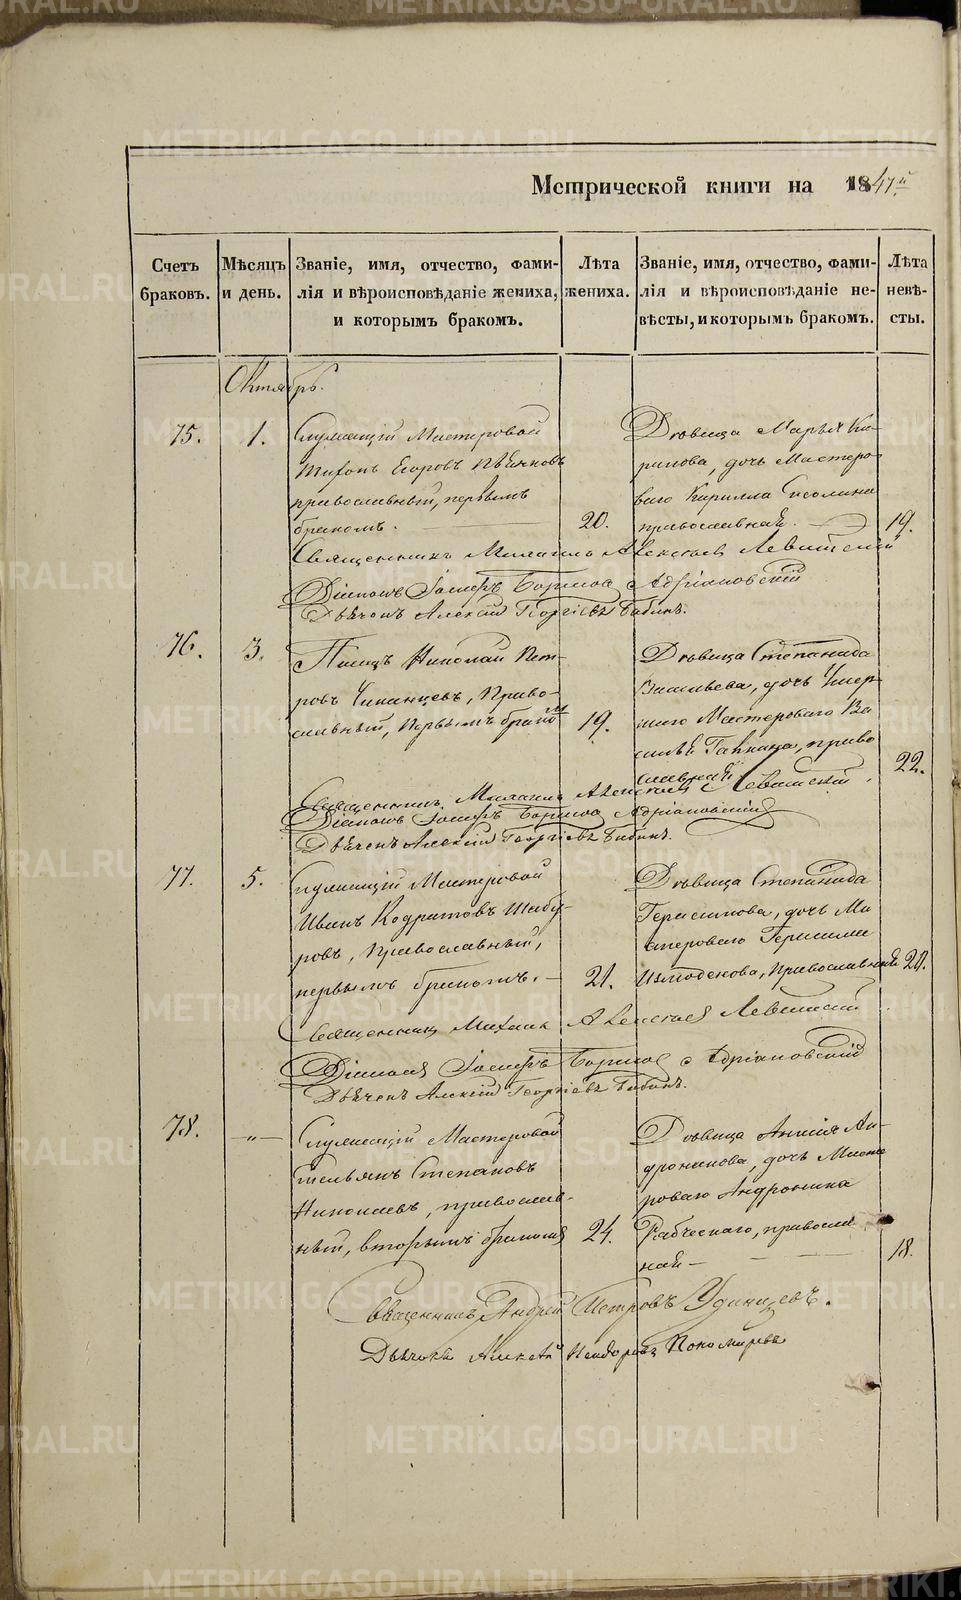 METRIKI.GASO-URAL.RU
Метрической книги на 1847й
Счетъ браковъ.
Мѣсяцъ и день.
Званіе, имя, отчество, фами-
лія и вѣроисповѣданіе жениха,
и которымъ бракомъ.
Лѣта жениха.
Званіе, имя, отчество, фами-
лія и вѣроисповѣданіе не-
вѣсты, и которымъ бракомъ.
Лѣта невѣ-
сты.
Октябрь.
75.
1.
Служащій Мастеровой
Тихонъ Егоровъ
православный, первымъ
бракомъ.
20.
Дѣвица Марья Ки-
рилова, дочь Мастеро-
ваго Кирилла
православная.
19.
Священникъ Михаилъ Алексѣевъ Левитскій
Діаконъ Іосифъ Борисовъ Адріановскій
Дьячекъ Алексій Георгіевъ Бабинъ.
76.
3.
Писецъ Николай Пет-
ровъ Чипанцевъ, Право-
славный, первымъ бракомъ
19.
Дѣвица Степанида
Васильева, дочь Умер-
шаго Мастероваго Ва-
силья Гапкина, право
славная
22.
Священникъ Михаилъ Алексѣевъ Левитскій.
Діаконъ Іосифъ Борисовъ Адріановскій
Дьячекъ Алексій Георгіевъ Бабинъ.
77.
5.
Служащій Мастеровой
Иванъ Кодратовъ Шабу-
ровъ, Православный,
первымъ бракомъ.
21.
Дѣвица Степанида
Герасимова, дочь Ма
стероваго Герасима
Измоденова, Православная
20.
Священникъ Михаилъ Алексѣевъ Левитскій
Діаконъ Іосифъ Борисовъ Адріановскій
Дьячекъ Алексій Георгіевъ Бабинъ.
78.
-"-
Служащій Мастеровой
Емельянъ Степановъ
Николаевъ, православ-
ный, вторымъ бракомъ
24.
Дѣвица Анисія Ан-
дроникова, дочь Масте
роваго Андроника
Рабческаго, православ
ная
18.
Священникъ Андрей Петровъ Удинцевъ.
Дьячекъ Алексѣй Исидоровъ Пономаревъ